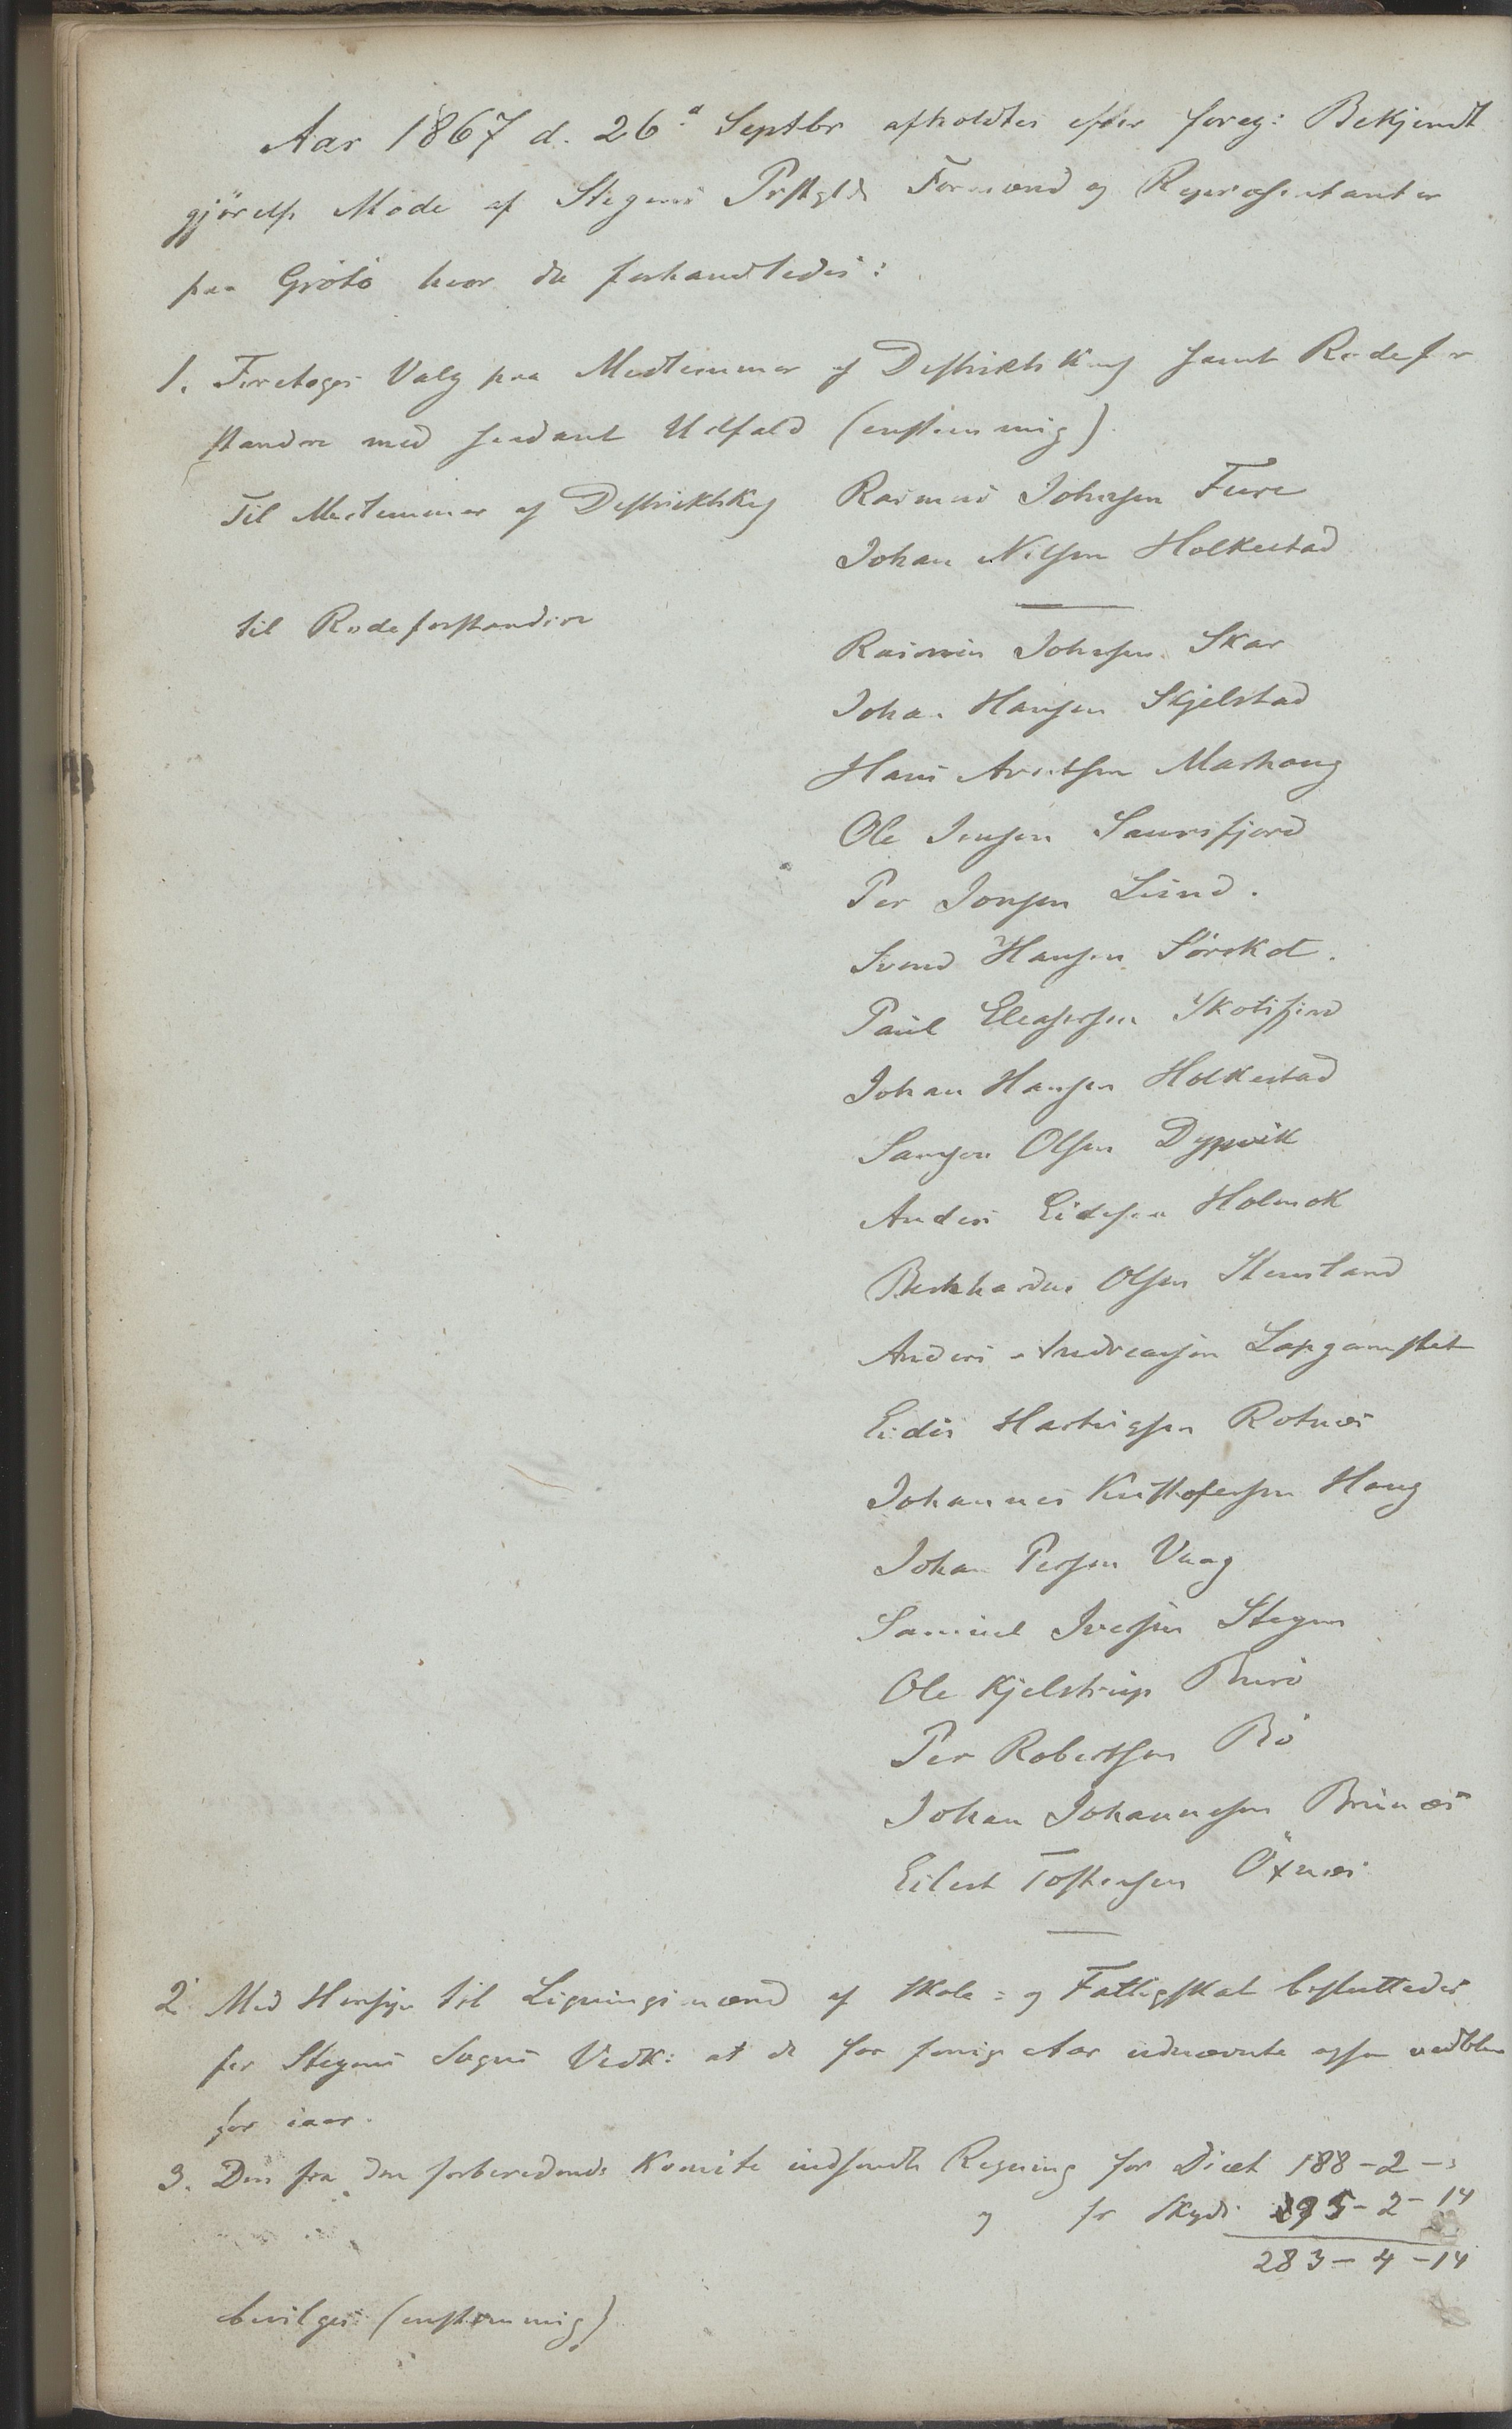 Aar 1867 d. 26d Septbr afholdtes efter foreg: Bekjendt
gjörelse Möde af Stegens Prstgldss Formænd og Repræsentanter
paa Grötö hvor da forhandledes:
1. Foretoges Valg paa Medlemmer af Distriktsk samt Rodefor
standere med saadant Udfald (enstemmig).
Til Medlemmer af Distriktsk Rasmus Johnsen Fure
Johan Nilsen Holkestad
til Rodeforstandere
Rasmus Johnsen Skar
Johan Hansen Skjelstad
Hans Arntsen Markoug
Ole Jensen Saursfjord
Per Jonsen Lund.
Svend Hansen Sörskot.
Paul Eleasersen Skotsfjord
Johan Hansen Holkestad
Samson Olsen Dypvik
Anders Eidesen Holmok
Berhardus Olsen Stensland
Anders Andreassen Lapgamslet
Eides Hartvigsen Rotnæs
Johannes Kristofersen Haug
Johan Persen Vaag
Samuel Iversen Stegen
Ole Kjelstrup Burö
Per Robertsen Bö
Johan Johannesen Brunæs
Eilert Tostensen Öxnæs
2. Med Hensyn til Ligningsmænd af Skole= og Fattigskat besluttedes
for Stegens Sogns Vedk: at de for forrige Aar udnævnte ogsaa vedblive
for iaar.
3. Den fra den forberedende Komite indsendte Regning for Diæt 188-2-"
og for Skyds 95-2-14
283-4-14
bevilges (enstemmig)